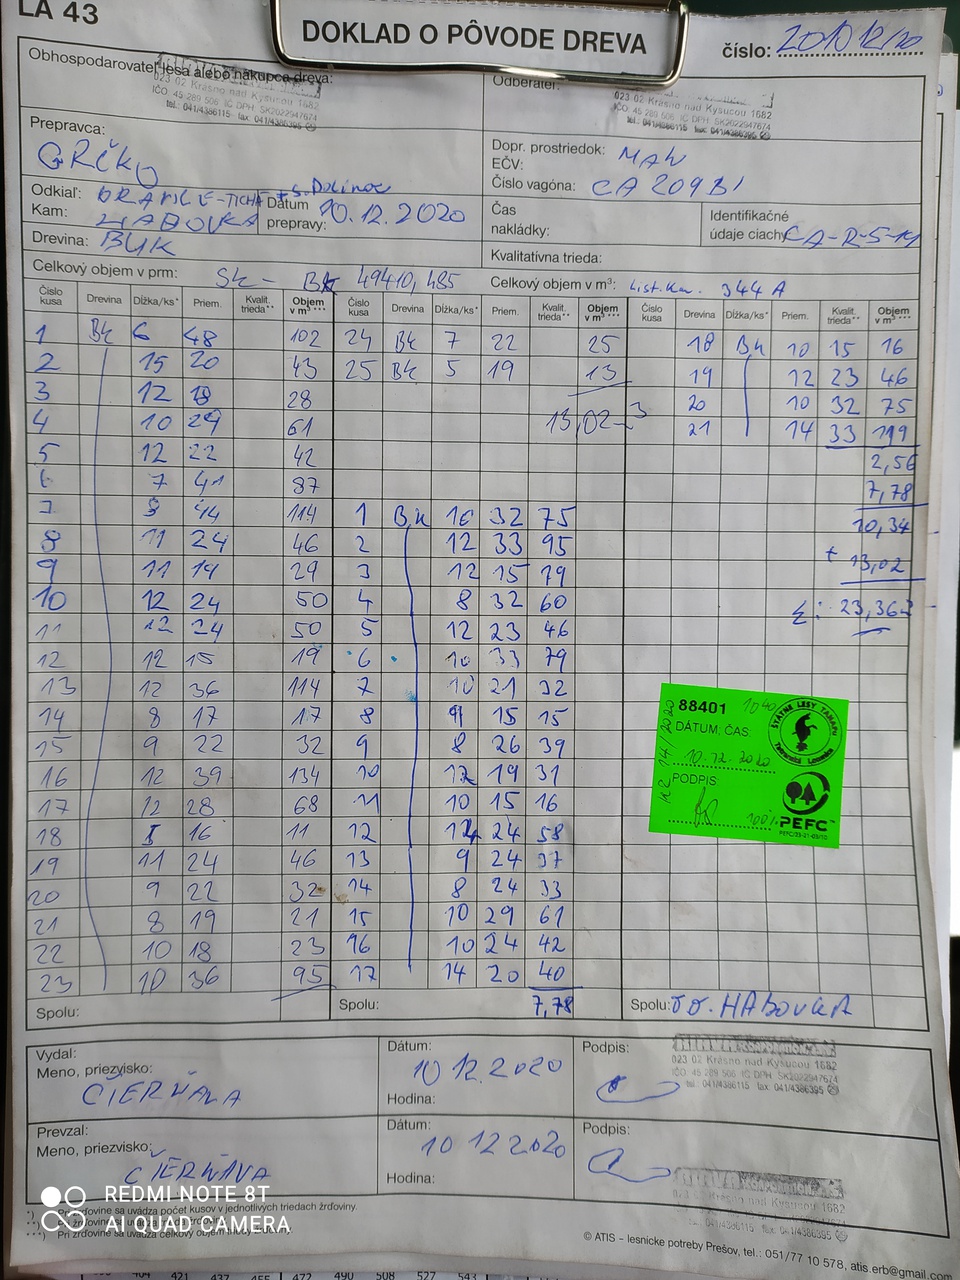 LA 43
DOKLAD O PÔVODE DREVA
číslo: 201012/10
Obhospodarovateľ lesa alebo nákupca dreva:
023 02 Krásno nad Kysucou 1682
IČO: 45 289 506 IČ DPH: SK2022947674
tel.: 041/4386115 fax: 041/4386395
Odberateľ:
023 02 Krásno nad Kysucou 1682
IČO: 45 289 506 IČ DPH: SK2022947674
tel.: 041/4386115 fax: 041/4386395
Prepravca:
GRÍČKO
Dopr. prostriedok: MAN
EČV:
Číslo vagóna: CA 209BI
Odkiaľ: ORAVICE-TICHÁ + S. Dolinac
Kam: HABOVKA
Dátum prepravy: 10.12.2020
Čas nakládky:
Identifikačné údaje ciachy: CA-R-5-19
Drevina: BUK
Kvalitatívna trieda:
Celkový objem v prm: SK - BK 49410,485
Celkový objem v m³: List.Ka. 344 A
Číslo kusa Drevina Dĺžka/ks* Priem. Kvalit. trieda** Objem v m³*** Číslo kusa Drevina Dĺžka/ks* Priem. Kvalit. trieda** Objem v m³*** Číslo kusa Drevina Dĺžka/ks* Priem. Kvalit. trieda** Objem v m³***
1 Bk 6 48 102 24 Bk 7 22 25 18 Bk 10 15 16
2 15 20 43 25 Bk 5 19 13 19 12 23 46
3 12 18 28 20 10 32 75
4 10 29 61 13,02 3 21 14 33 119
5 12 22 42 2,56
6 7 41 87 7,78
7 9 44 114 1 Bk 10 32 75 10,34
8 11 24 46 2 12 33 95 + 13,02
9 11 19 29 3 12 15 79
10 12 24 50 4 8 32 60 Σ: 23,36
11 12 24 50 5 12 23 46
12 12 15 19 6 10 33 79
13 12 36 114 7 10 21 32
14 8 17 17 8 9 15 15
15 9 22 32 9 8 26 39
16 12 39 134 10 12 19 31
17 12 28 68 11 10 15 16
18 5 16 11 12 14 24 58
19 11 24 46 13 9 24 37
20 9 22 32 14 8 24 33
21 8 19 21 15 10 29 61
22 10 18 23 16 10 24 42
23 10 36 95 17 14 20 40
Spolu: Spolu: 7,78 Spolu: HABOVKA
88401 1040
DÁTUM, ČAS:
10.12.2020
PODPIS
100%
ŠTÁTNE LESY TANAPU
Tatranská Lomnica
PEFC™
PEFC/23-21-05/10
Vydal:
Meno, priezvisko:
ČIERŇAVA
Dátum:
10 12.2020
Hodina:
Podpis:
023 02 Krásno nad Kysucou 1682
IČO: 45 289 506 IČ DPH: SK2022947674
tel.: 041/4386115 fax: 041/4386395
Prevzal:
Meno, priezvisko:
ČIERŇAVA
Dátum:
10 12 2020
Hodina:
Podpis:
023 02 Krásno nad Kysucou 1682
tel.: 041/4386115 fax: 041/4386395
Pri žrďovine sa uvádza počet kusov v jednotlivých triedach žrďoviny.
Pri žrďovine sa uvádza celkový objem triedy žrďoviny.
© ATIS – lesnícke potreby Prešov, tel.: 051/77 10 578, atis.erb@gmail.com
REDMI NOTE 8T
AI QUAD CAMERA